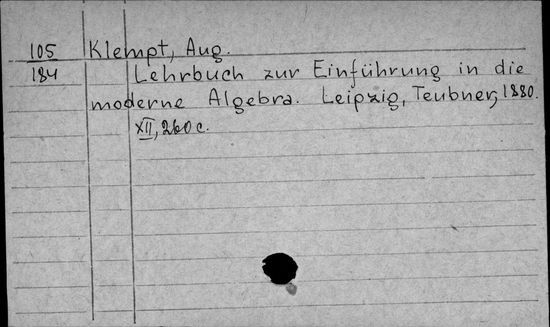 105 Klempt, Aug.
184 Lehrbuch zur Einführung in die
moderne Algebra. Leipzig, Teubner, 1880.
XII, 260 c.